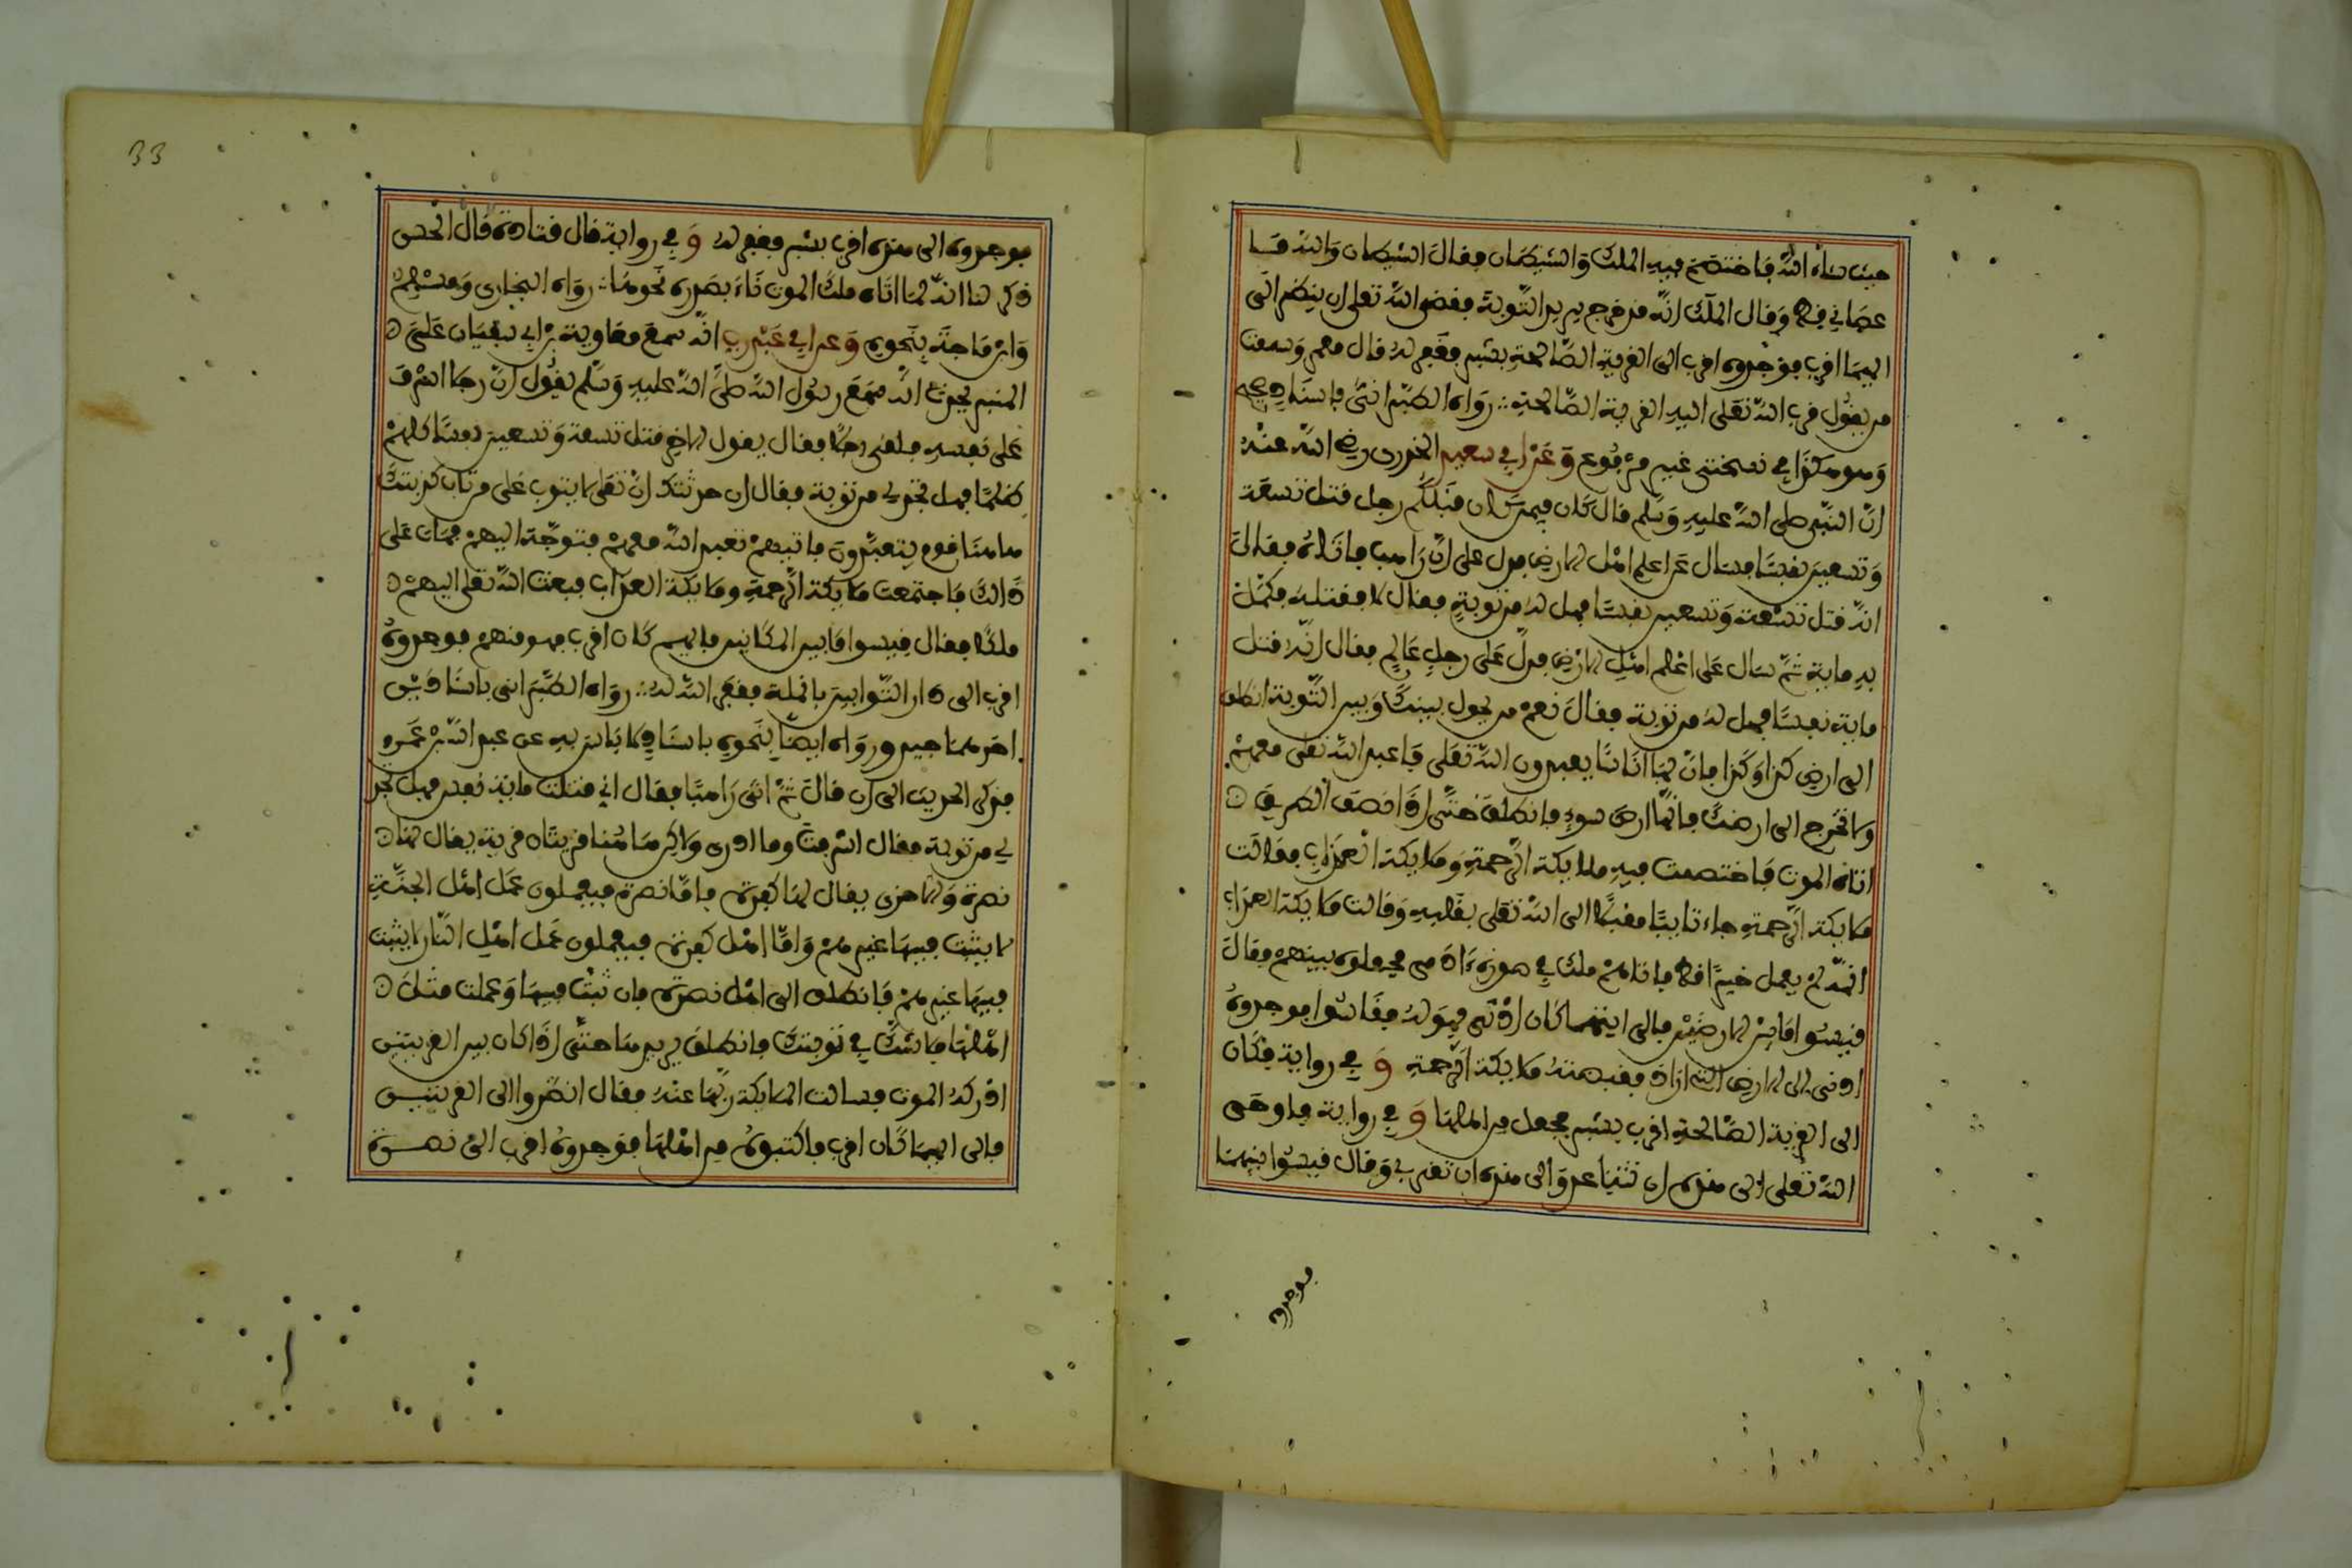 حيث شاء الله فاختصم فيه الملك والشيطان فقال الشيطان والله ما
عصاني قط وقال الملك انه قد خرج يريد التوبة فقضى الله تعلى ان ينظر الى
ايهما اقرب فوجدوه اقرب الى القرية الصالحة بشبر فغفر له قال معمر وسمعت
من يقول قرب الله تعلى اليه القرية الصالحة رواه الطبراني باسناد صحيح
وهو هكذا في نسختي غير مرفوع وعن ابي سعيد الخدري رضي الله عنه
ان النبي صلى الله عليه وسلم قال كان فيمن كان قبلكم رجل قتل تسعة
وتسعين نفسا فسال عن اعلم اهل الارض فدل على ان راهب فاتاه فقال
انه قتل تسعة وتسعين نفسا فهل له من توبة فقال لا فقتله فكمل
به ماية ثم سال على اعلم اهل الارض فدل على رجل عالم فقال انه قتل
ماية نفسا فهل له من توبة فقال نعم من يحول بينك وبين التوبة انطلق
الى ارض كذا وكذا فان بها اناسا يعبدون الله تعلى فاعبد الله تعلى معهم
ولا تخرج الى ارضك فانها ارض سوء فانطلق حتى اذا انصف الطريق
اتاه الموت فاختصمت فيه ملايكة الرحمة وملايكة العذاب فقالت
ملايكة الرحمة جاء تايبا مقبلا الى الله تعلى بقلبه وقالت ملايكة العذاب
انه لم يعمل خيرا قط فاتاهم ملك في صورة ءادمي فجعلوه بينهم فقال
قيسوا ما بين الارضين فالى ايتهما كان ادنى فهو له فقاسوا فوجدوه
ادنى الى الارض التي اراد فقبضته ملايكة الرحمة وفي رواية فكان
الى القرية الصالحة اقرب بشبر فجعل من اهلها وفي رواية فاوحى
الله تعلى الى هذه ان تباعدي والى هذه ان تقربي وقال قيسوا بينهما
فوجدوه
33
فوجدوه الى هذه اقرب بشبر فغفر له وفي رواية قال قتادة قال الحسن
ذكر لنا انه لما اتاه ملك الموت ناء بصدره نحوها رواه البخاري ومسلم
وابن ماجة بنحوه وعن ابي عبد رب انه سمع معاوية بن ابي سفيان على
المنبر يحدث انه سمع رسول الله صلى الله عليه وسلم يقول ان رجلا اسرف
على نفسه فلقي رجلا فقال يقول الاخر قتل تسعة وتسعين نفسا كلهم
ظلما فهل تجد لي من توبة فقال ان حدثتك ان الله تعلى لا يتوب على من تاب كذبتك
هاهنا قوم يتعبدون فاتيهم تعبد الله معهم فتوجه اليهم فمات على
ذالك فاجتمعت ملايكة الرحمة وملايكة العذاب فبعث الله تعلى اليهم
ملكا فقال قيسوا ما بين المكانين فايهم كان اقرب فهو منهم فوجدوه
اقرب الى دار التوابين بانملة فغفر الله له رواه الطبراني باسنادين
احدهما جيد ورواه ايضا بنحوه باسناد لا باس به عن عبد الله بن عمرو
فذكر الحديث الى ان قال ثم اتى راهبا فقال اني قتلت ماية نفس فهل تجد
لي من توبة فقال اسرفت وما ادري ولاكن هاهنا قريتان قرية يقال لها
نصرة والاخرى يقال لها كفرة فاما نصرة فيعملون عمل اهل الجنة
لا يثبت فيها غيرهم واما اهل كفرة فيعملون عمل اهل النار لا يثبت
فيها غيرهم فانطلق الى اهل نصرة فان ثبت فيها وعملت مثل
اهلها فلا شك في توبتك فانطلق يريدها حتى اذا كان بين القريتين
ادركه الموت فسالت الملايكة ربها عنه فقال انظروا الى القريتين
فالى ايهما كان اقرب فاكتبوه من اهلها فوجدوه اقرب الى نصرة